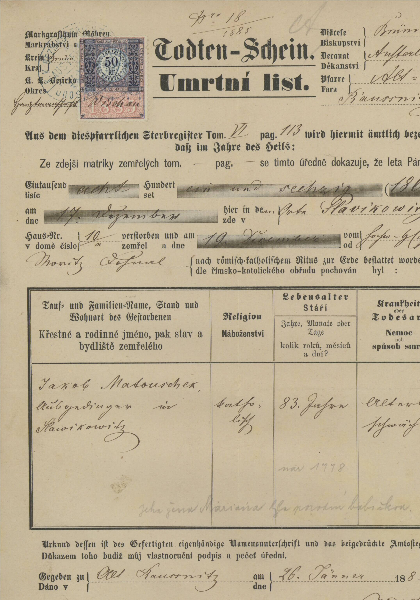 Nro 18
1885
Markgrafthum Mähren
Markrabství
Kreis Brünn
Kraj
K. K.
Okres
Bezirkshauptmannschaft Wischau
50
Diöcese Brünn
Biskupství
Decanat Austerl
Děkanství
Pfarre Alt-
Fara Rausnitz
Todten-Schein.
Úmrtní list.
Aus dem diespfarrlichen Sterbregister Tom. VI pag. 113 wird hiermit ämtlich beze
daß im Jahre des Heils:
Ze zdejší matriky zemřelých tom. - pag. - se timto úředně dokazuje, že leta Pán
Eintausend acht Hundert ein und sechzig (186
tisíc set
am 17. Dezember hier in dem Orte Slavikowitz
dne zde v
Haus-Nr. 10 verstorben und am 19. Dezember vom
v domě číslo zemřel a dne od
Moritz
nach römisch-katholischem Ritus zur Erde bestattet worde
dle římsko-katolického obřadu pochován byl :
Tauf- und Familien-Name, Stand und
Wohnort des Gestorbenen
Křestné a rodinné jméno, pak stav a
bydliště zemřelého
Religion
Náboženství
Lebensalter
Stáří
Jahre, Monate oder
Tage
kolik roků, měsíců
a dní?
Krankheit
oder
Todesar
Nemoc
spůsob smr
Jakob Matouschek,
Ausgedinger in
Slawikowitz
katho-
lisch
83 Jahre
Alters
schwäch
nar 1778
Urkund dessen ist des Gefertigten eigenhändige Namensunterschrift und das beigedrückte Amtssieg
Důkazem toho budiž můj vlastnoruční podpis a pečeť úřední.
Gegeben zu Alt Rausnitz am 26. Jänner 188
Dáno v dne